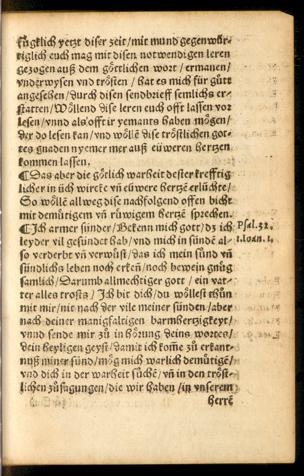 fůgklich yetzt diser zeit/mit mund gegenwür-
tiglich euch mag mit disen notwendigen leren
gezogen auß dem götlichen wort/ermanen/
vnderwysen vnd trösten/hat es mich für gůtt
angesehen/durch disen sendbrieff semlichs er-
statten/Wöllend dise leren euch offt lassen vor
lesen/vnnd als offt ir yemants haben mögen/
der do lesen kan/vnd wölle dise tröstlichen got-
tes gnaden nyemer mer auß eüweren hertzen
kommen lassen.
¶Das aber die götlich warheit dester krefftig
licher in üch wircke vñ eüwere hertzẽ erlüchte/
So wölle allweg dise nachfolgend offen bicht
mit demütigem vñ růwigem hertzẽ sprechen.
¶Ich armer sünder/Bekenn mich gott/dz ich
leyder vil gesündet hab/vnd mich in sünde al-
so verderbt vñ verwüst/das ich mein sünd vñ
sündlichs leben noch erkeñ/noch bewein gnůg
samlich/Darumb allmechtiger gott/ein vat-
ter alles trosts/Ich bit dich/du wöllest thůn
mit mir/nit nach der vile meiner sünden/aber
nach deiner manigfaltigen barmhertzigkeyt/
vnnd sende mir zů in hörung deins wortes/
dein heyligen geyst/damit ich kom̃e zů erkant-
nuß miner sünd/mög mich warlich demütigẽ/
vnd dich in der warheit sůchẽ/vñ in den tröst-
lichen zůsagungen/die wir haben/in vnserem
herrẽ
Psal.32.
1.Ioan.1.